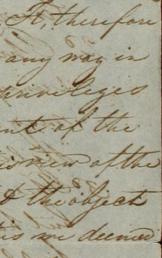 It, therefore
any way in
privileges
ent of the
view of the
& the object
is deemed